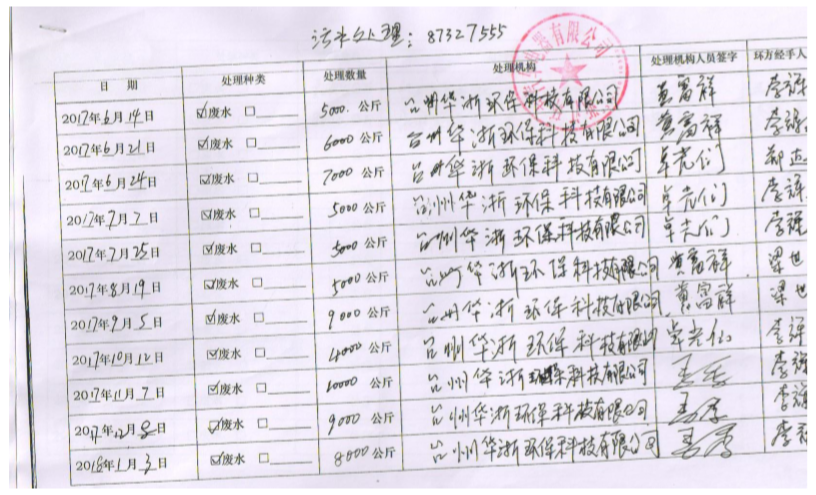 污水处理：87327555
日 期 处理种类 处理数量 处理机构 处理机构人员签字 环方经手人
2017年6月14日 ☑废水 □ 5000 公斤 台州华浙环保科技有限公司 黄富祥 李
2017年6月21日 ☑废水 □ 6000 公斤 台州华浙环保科技有限公司 黄富祥 李
2017年6月24日 ☑废水 □ 7000 公斤 台州华浙环保科技有限公司
2017年7月7日 ☑废水 □ 5000 公斤 台州华浙环保科技有限公司 李
2017年7月25日 ☑废水 □ 5000 公斤 台州华浙环保科技有限公司 李
2017年8月19日 ☑废水 □ 5000 公斤 台州华浙环保科技有限公司 黄富祥 梁世
2017年9月5日 ☑废水 □ 9000 公斤 台州华浙环保科技有限公司 黄富祥 梁世
2017年10月12日 ☑废水 □ 公斤 台州华浙环保科技有限公司 李
2017年11月7日 ☑废水 □ 10000 公斤 台州华浙环保科技有限公司 李
2017年12月8日 ☑废水 □ 9000 公斤 台州华浙环保科技有限公司 李
2018年1月3日 ☑废水 □ 8000 公斤 台州华浙环保科技有限公司 李